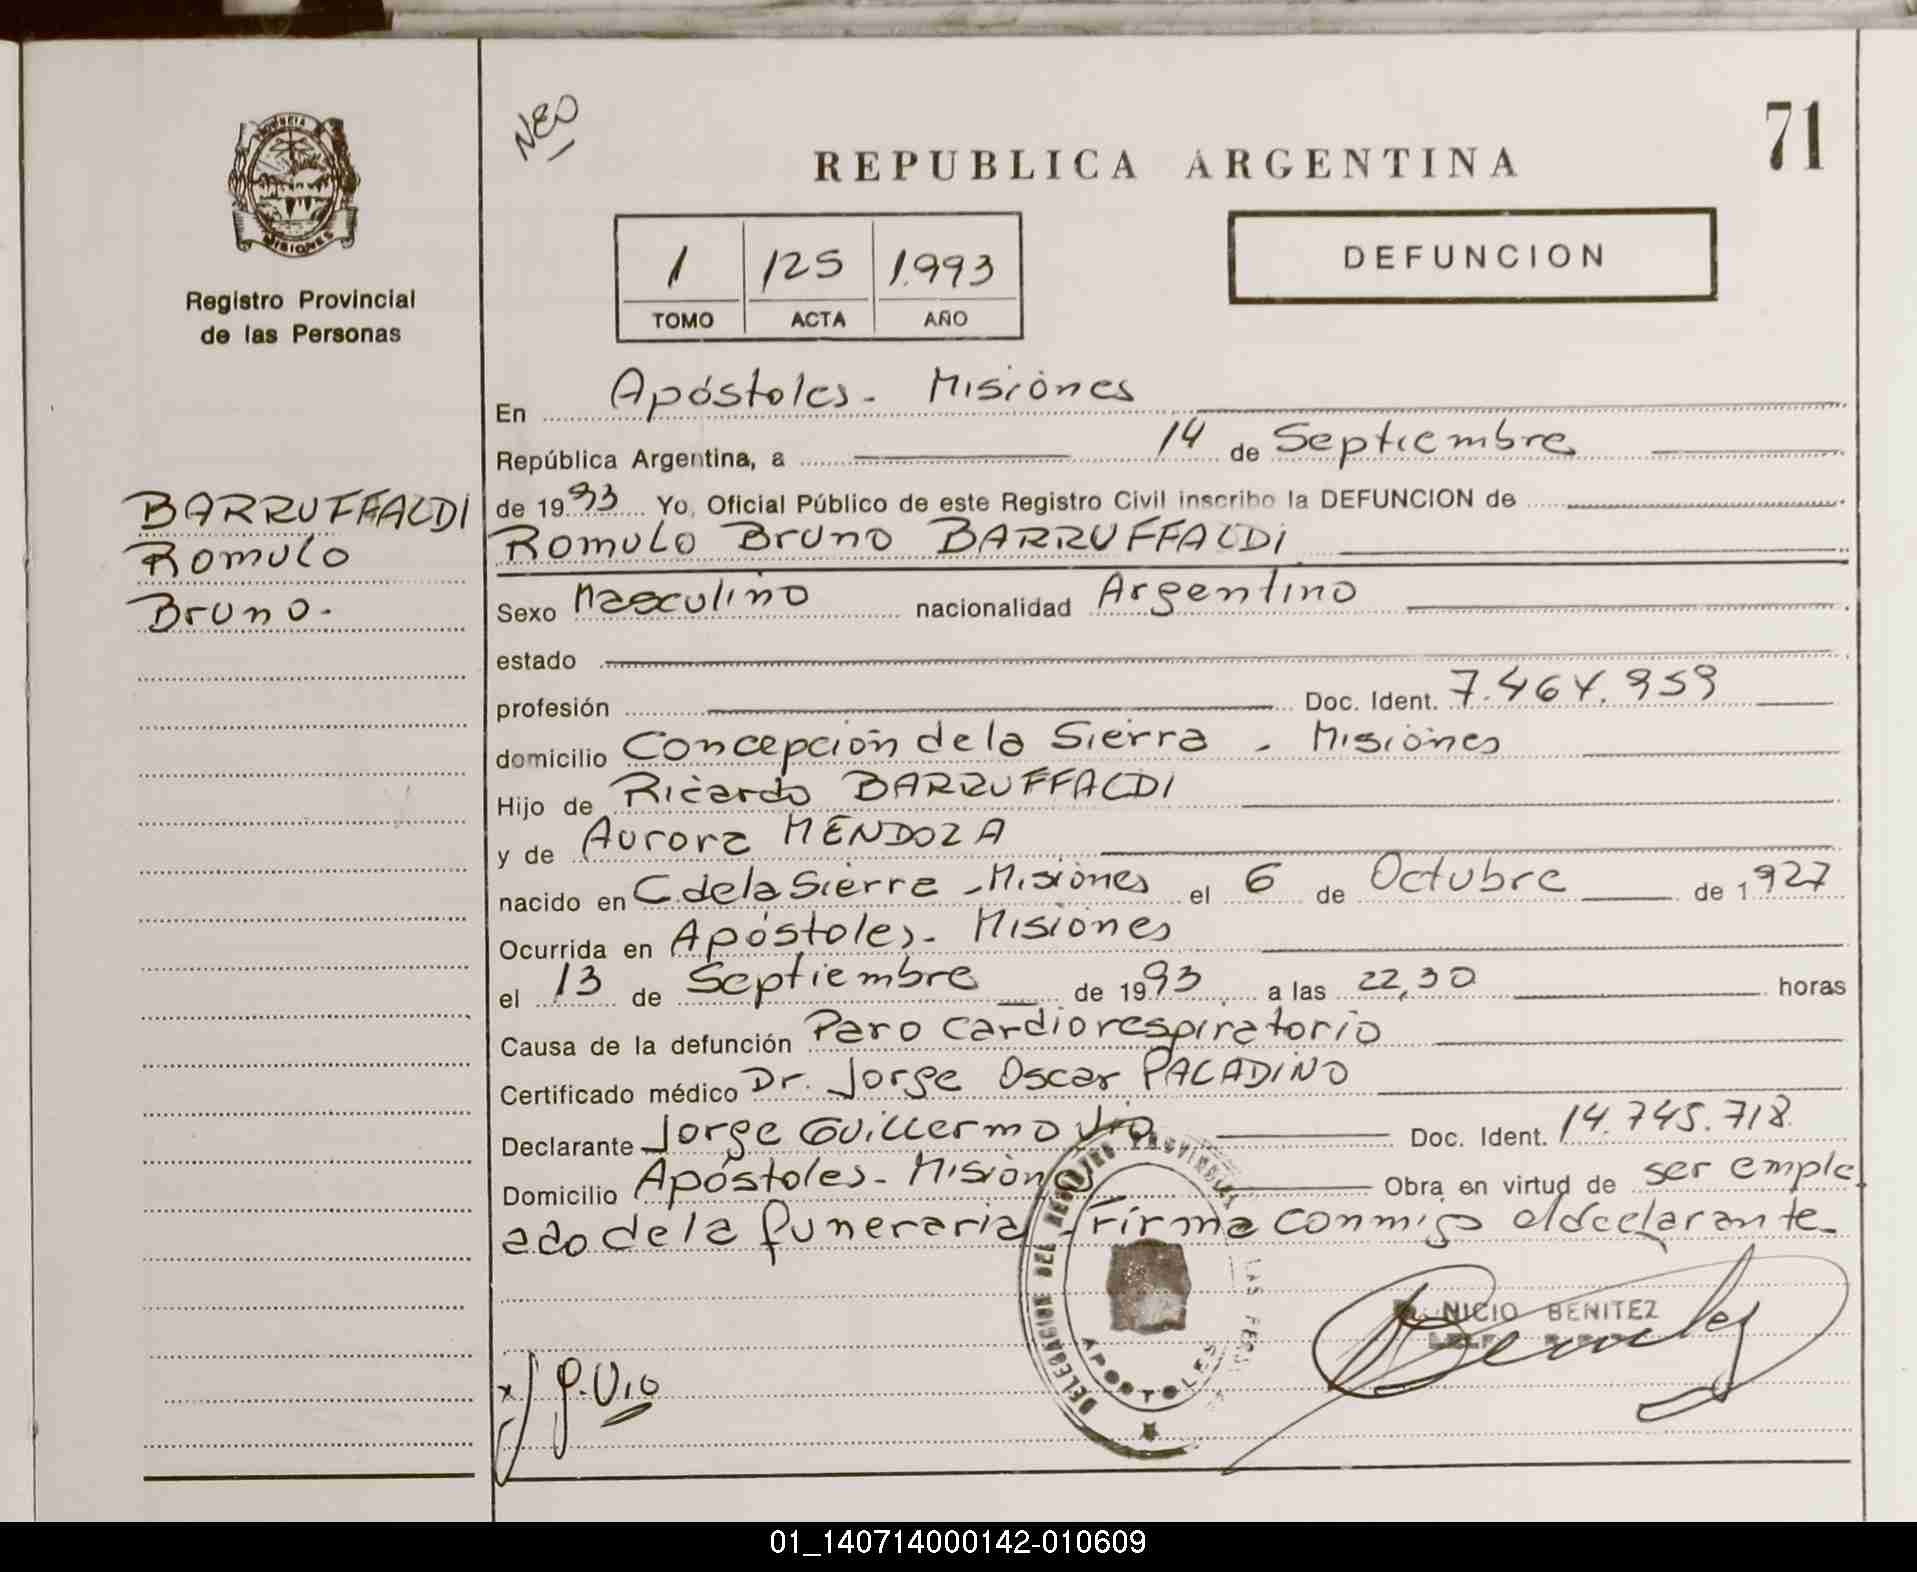 NEO
71
REPUBLICA ARGENTINA
PROVINCIA
MISIONES
Registro Provincial
de las Personas
1 125 1.993
TOMO ACTA AÑO
DEFUNCION
BARRUFFALDI
Romulo
Bruno.
En Apóstoles - Misiones
República Argentina, a 14 de Septiembre
de 1993 Yo, Oficial Público de este Registro Civil inscribo la DEFUNCION de
Romulo Bruno BARRUFFALDI
Sexo Masculino nacionalidad Argentino
estado
profesión Doc. Ident. 7.464.959
domicilio Concepción de la Sierra - Misiones
Hijo de Ricardo BARRUFFALDI
y de Aurora MENDOZA
nacido en C. de la Sierra - Misiones el 6 de Octubre de 1927
Ocurrida en Apóstoles - Misiones
el 13 de Septiembre de 1993 a las 22,30 horas
Causa de la defunción Paro cardiorespiratorio
Certificado médico Dr. Jorge Oscar PALADINO
Declarante Jorge Guillermo Vio Doc. Ident. 14.745.718
Domicilio Apóstoles - Misiones Obra en virtud de ser emple
ado de la funeraria - Firma conmigo el declarante -
DELEGACION DEL REGISTRO PROVINCIAL LAS
APOSTOLES
NICIO BENITEZ
x J g. Vio
01_140714000142-010609